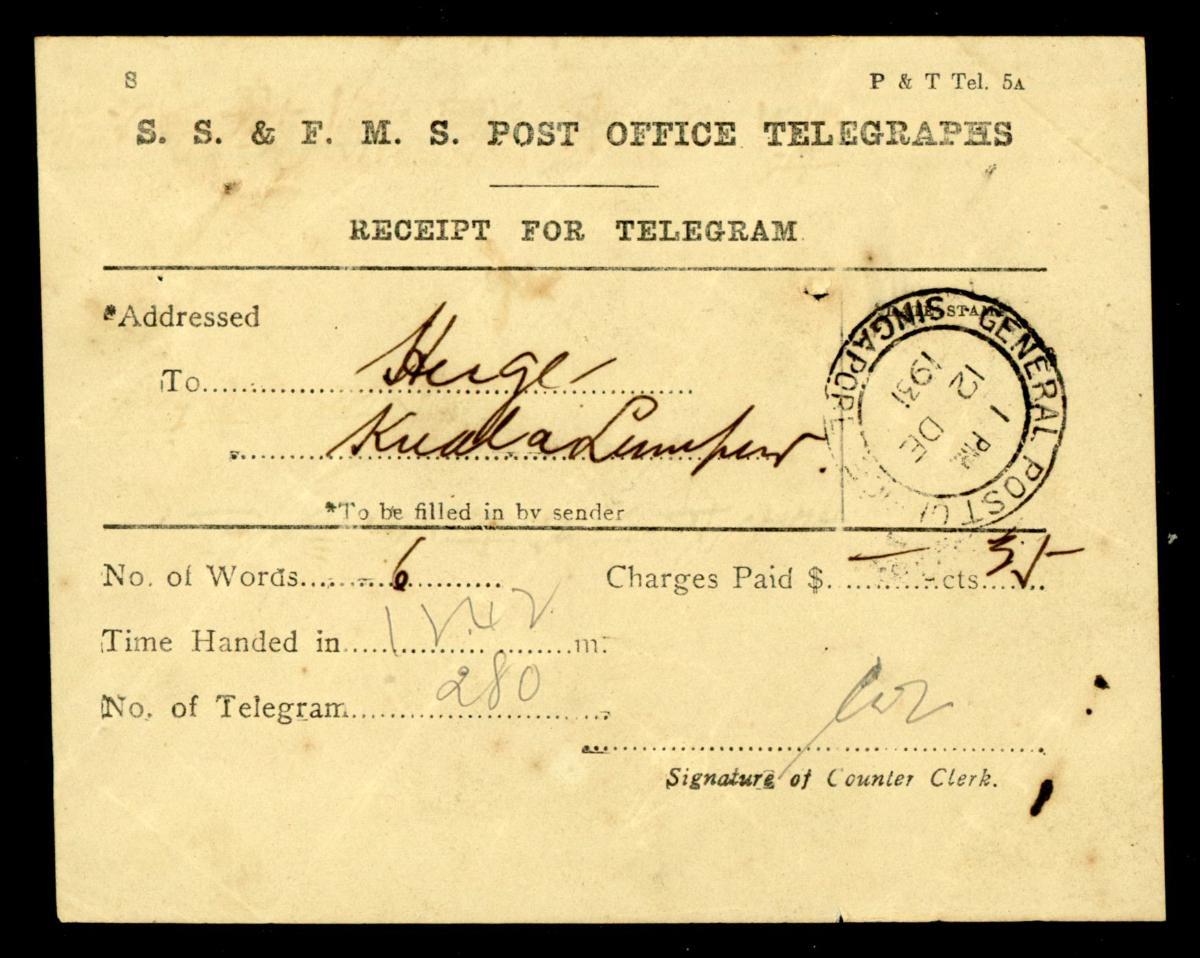 8 P & T Tel. 5A
S. S. & F. M. S. POST OFFICE TELEGRAPHS
RECEIPT FOR TELEGRAM.
*Addressed
To
Kuala Lumpur.
*To be filled in by sender
DATE STAMP
GENERAL POST OFFICE SINGAPORE
1 PM
12 DE
1931
No. of Words 6 Charges Paid $ — cts. 35
Time Handed in 1242 m.
No. of Telegram 280
Signature of Counter Clerk.